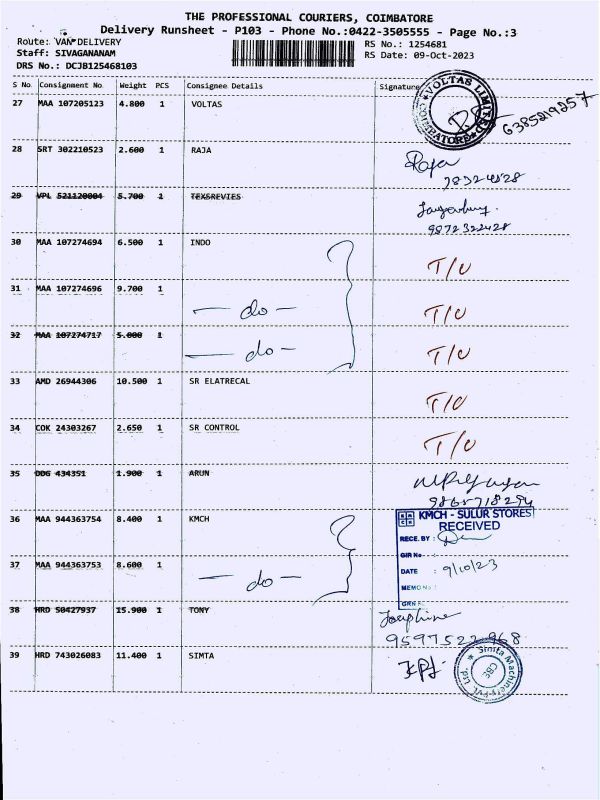 THE PROFESSIONAL COURIERS, COIMBATORE
Delivery Runsheet - P103 - Phone No.:0422-3505555 - Page No.:3
Route: VAN DELIVERY
RS No.: 1254681
Staff: SIVAGANANAM
RS Date: 09-Oct-2023
DRS No.: DCJB125468103
S No Consignment No Weight PCS Consignee Details Signature
27 MAA 107205123 4.800 1 VOLTAS
VOLTAS LIMITED
COIMBATORE
6385219257
28 SRT 302210523 2.600 1 RAJA
Raja
29 VPL 521120004 5.700 1 TEXSREVIES
9872322428
30 MAA 107274694 6.500 1 INDO
T/U
31 MAA 107274696 9.700 1
- do -
T/U
32 MAA 107274717 5.000 1
- do -
T/U
33 AMD 26944306 10.500 1 SR ELATRECAL
T/U
34 COK 24303267 2.650 1 SR CONTROL
T/U
35 DDG 434351 1.900 1 ARUN
9865718294
36 MAA 944363754 8.400 1 KMCH
KMCH - SULUR STORES
RECEIVED
RECE. BY :
GIR No
37 MAA 944363753 8.600 1
- do -
DATE : 9/10/23
MEMO No :
38 HRD 50427937 15.900 1 TONY
Josephine
9597522968
39 HRD 743026083 11.400 1 SIMTA
Simta Machinery Pvt. Ltd.
CBE